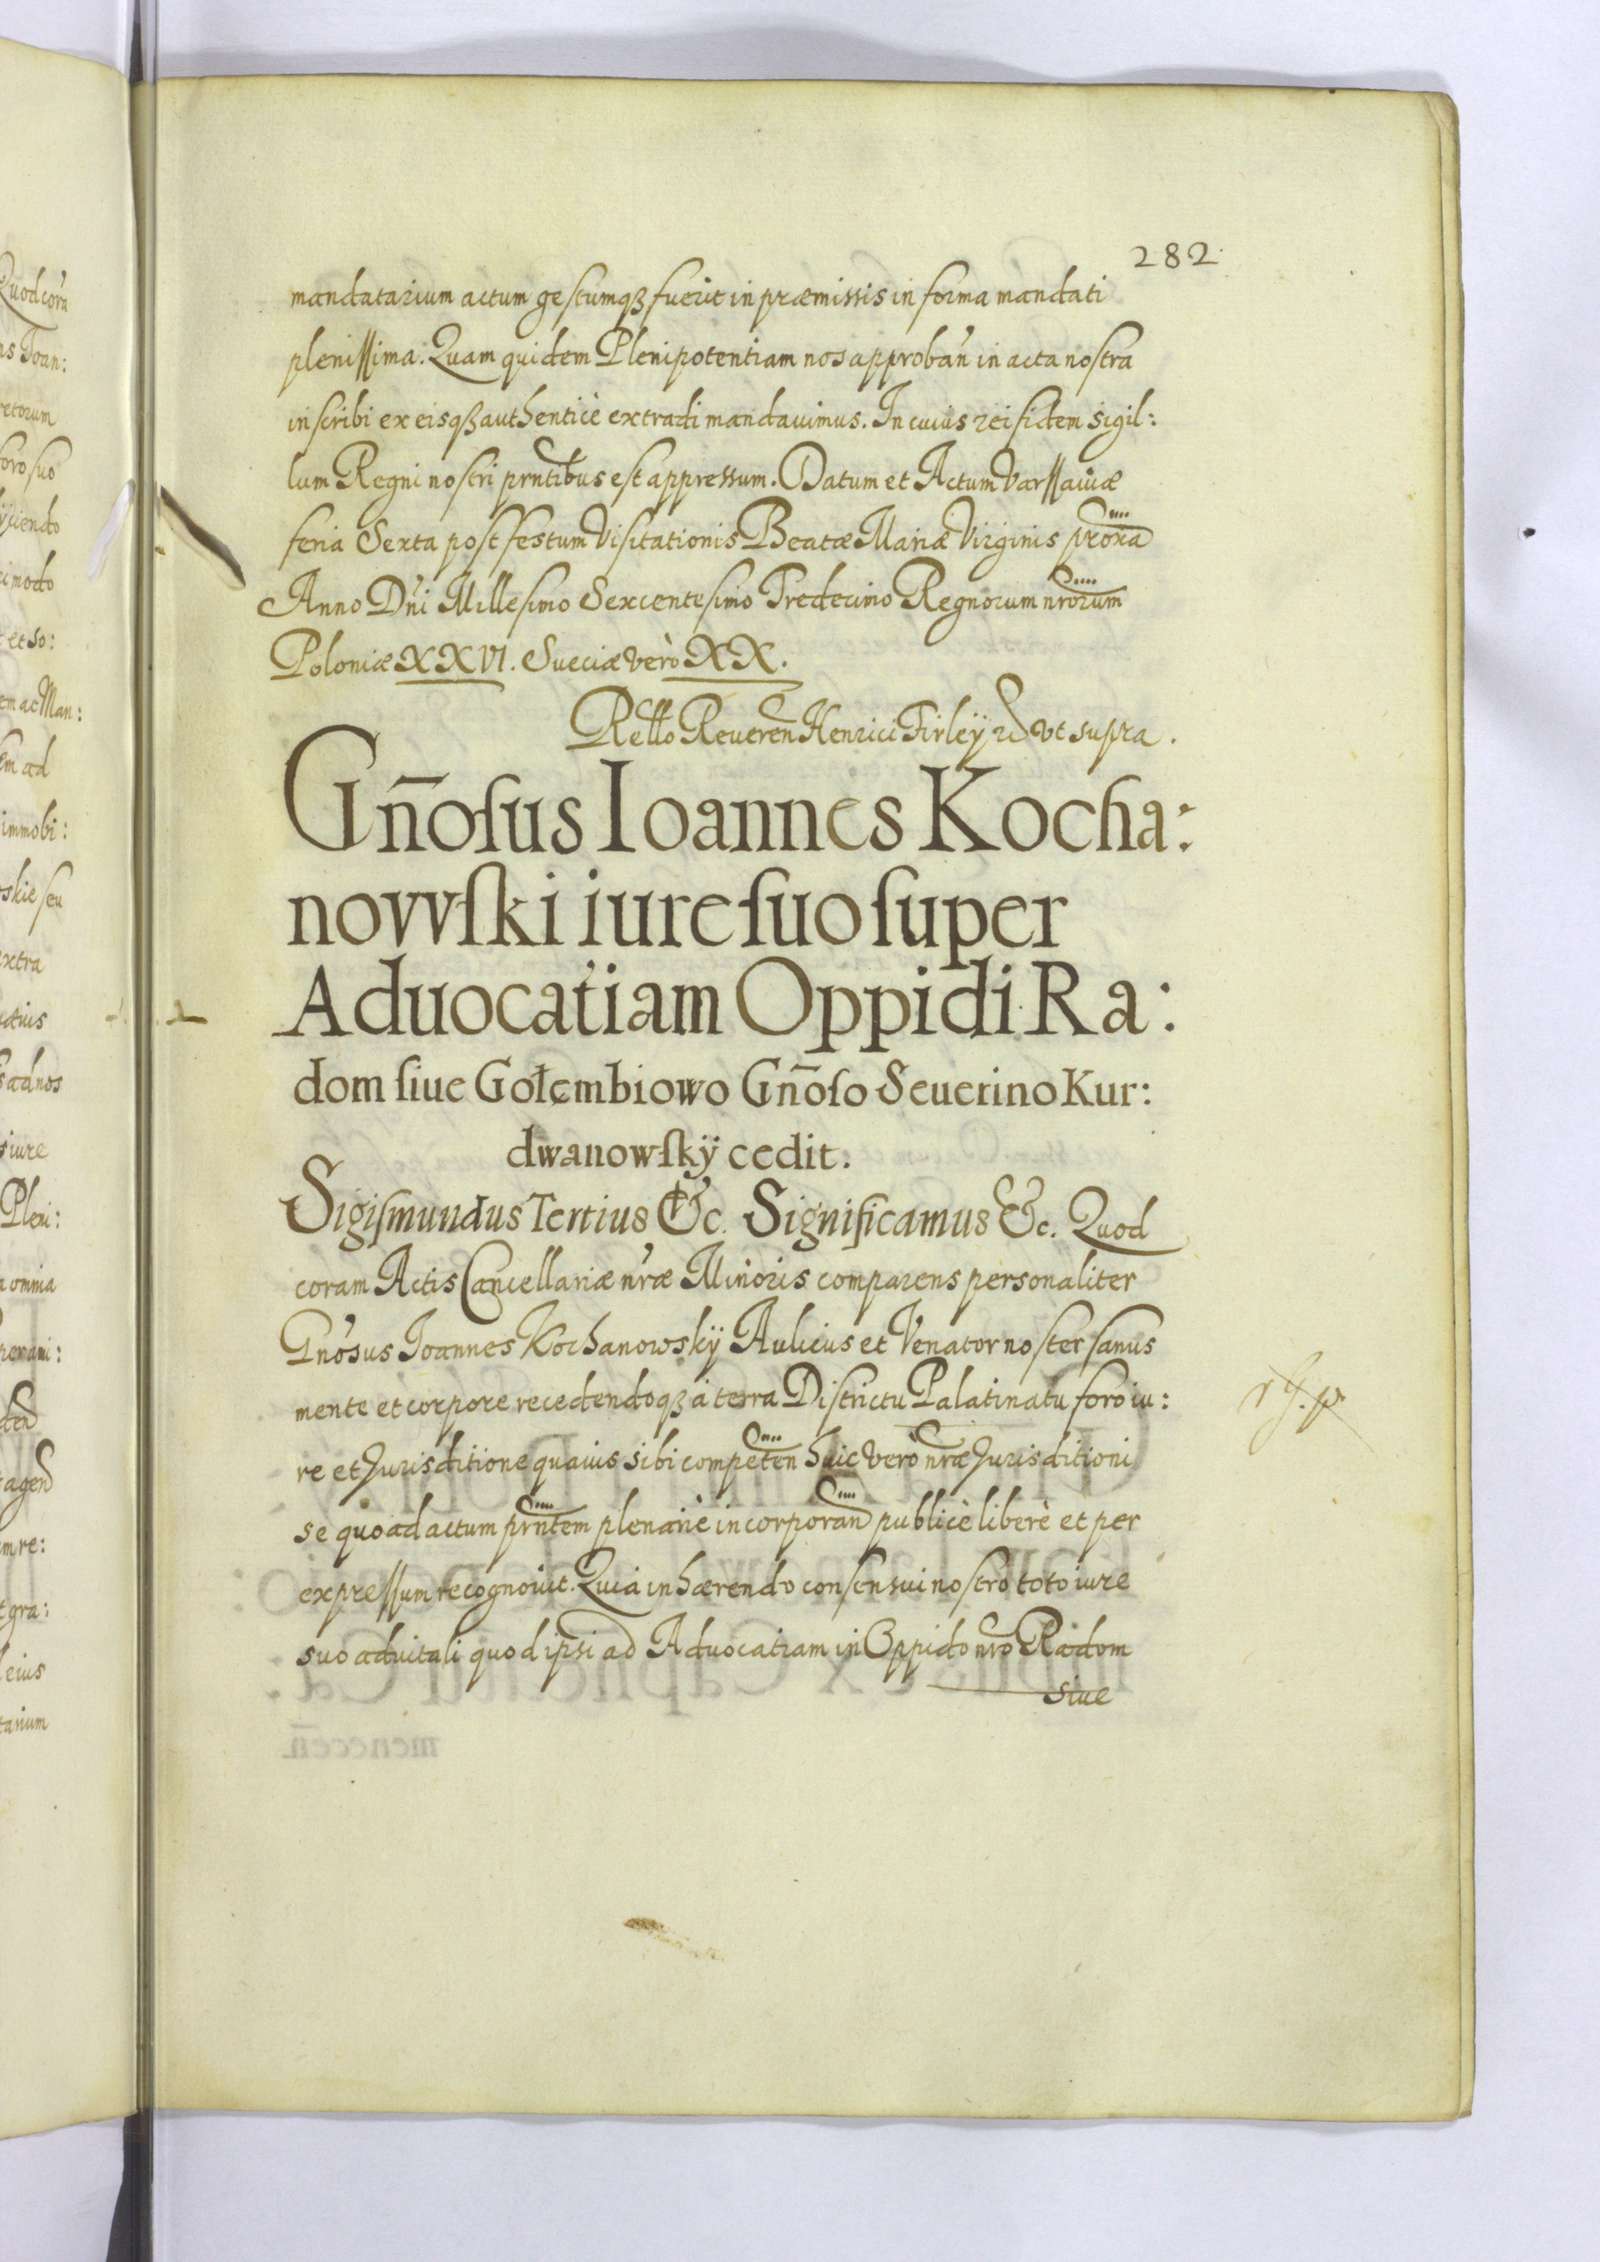 282
mandatarium actum gestumqȝ fuerit in præmissis in forma mandati
plenissima. Quam quidem Plenipotentiam nos approban̄ in acta nostra
inscribi ex eisqȝ authenticè extradi mandavimus. In cuius rei fidem sigil:
lum Regni nostri prntibus est appressum. Datum et Actum Varssaviæ
feria Sexta post festum Visitationis Beatæ Mariæ Virginis proxīa
Anno Dn̄i Millesimo Sexcentesimo Tredecimo Regnorum nrorum
Poloniæ XXVI. Sueciæ verò XX.
Rello Reueren Henrici Firleÿ ut supra.
Gn̄osus Ioannes Kocha:
nowski iure suo super
Aduocatiam Oppidi Ra:
dom siue Gołembiowo Gn̄oso Seuerino Kur:
dwanowskÿ cedit.
Sigismundus Tertius &c. Significamus &c. Quod
coram Actis Cancellariæ nr̄æ Minoris comparens personaliter
Gn̄osus Ioannes Kochanowskÿ Aulicus et Venator noster sanus
mente et corpore recedendoqȝ à terra Districtu Palatinatu foro iu:
re et Jurisditione quavis sibi competen̄ huic verò nræ Jurisditioni
se quoad actum prntem plenariè incorporan̄ publicè liberè et per
expressum recognovit. Quia inhærendo consensui nostro toto iure
suo advitali quod ipsi ad Advocatiam in Oppido nro Radom
siue